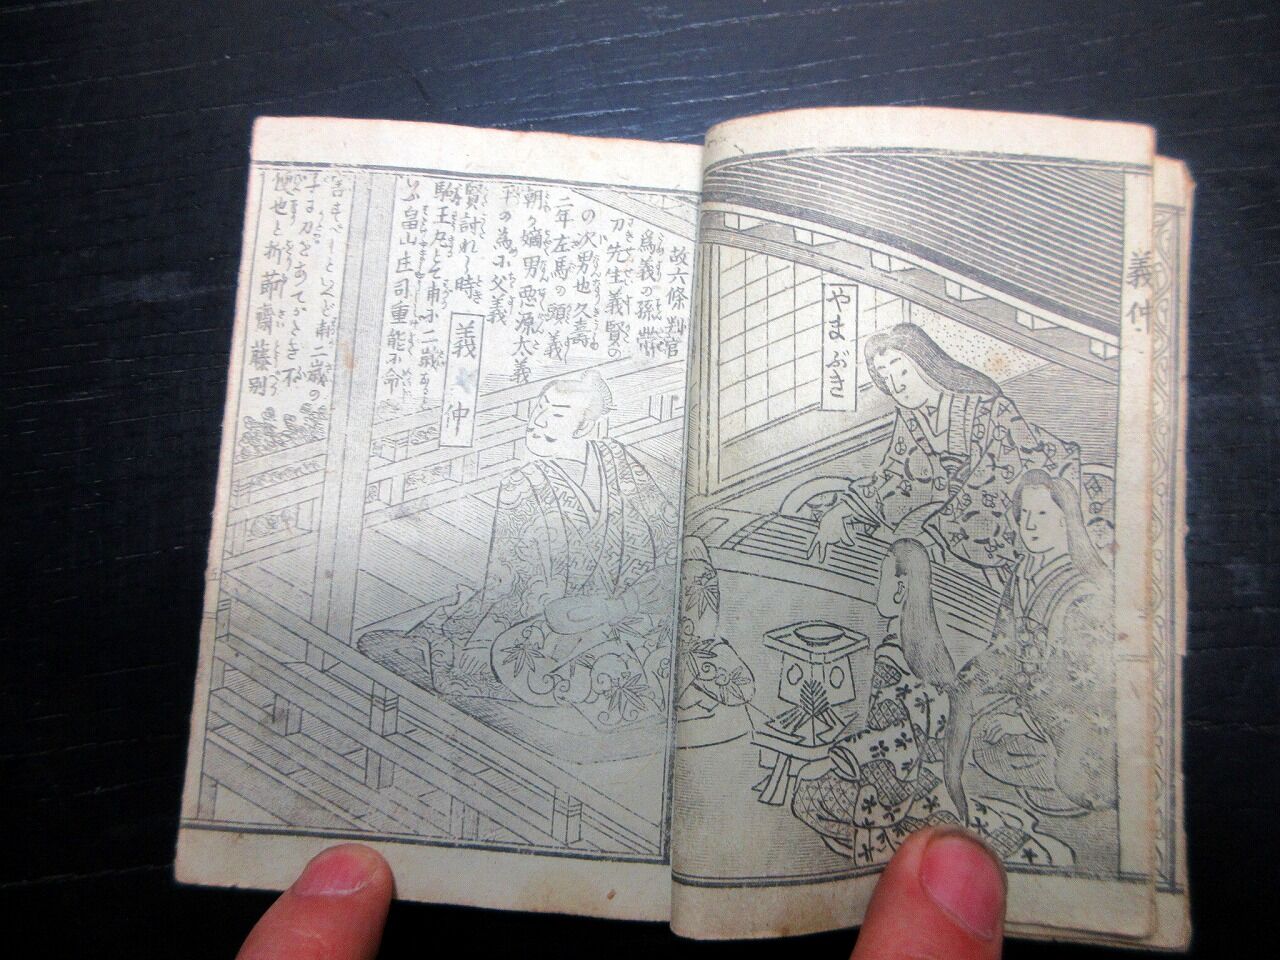 義仲
やまぶき
故六條判官
為義の孫帯
刀先生義賢の
の次男也久壽
二年左馬の頭義
朝が嫡男悪源太義
平の為に父義
賢討れし時
駒王丸とて甫に二歳なり
畠山庄司重能に命
害すべしといへど甫二歳の
子に刀をあてがたき不
便也と折節齋藤別
義仲